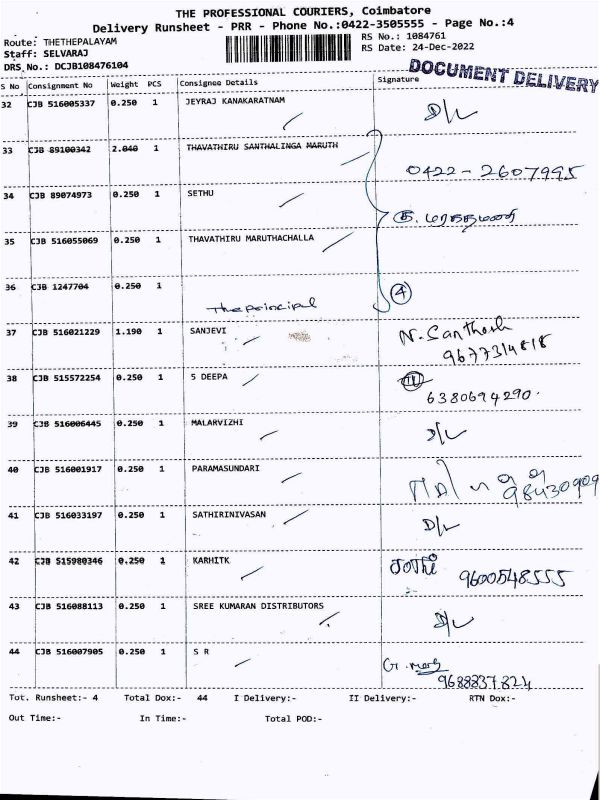 THE PROFESSIONAL COURIERS, Coimbatore
Delivery Runsheet - PRR - Phone No.:0422-3505555 - Page No.:4
Route: THETHEPALAYAM
RS No.: 1084761
Staff: SELVARAJ
RS Date: 24-Dec-2022
DRS No.: DCJB108476104
DOCUMENT DELIVERY
S No Consignment No Weight PCS Consignee Details Signature
32 CJB 516005337 0.250 1 JEYRAJ KANAKARATNAM D/L
33 CJB 89100342 2.040 1 THAVATHIRU SANTHALINGA MARUTH
0422-2607995
34 CJB 89074973 0.250 1 SETHU
35 CJB 516055069 0.250 1 THAVATHIRU MARUTHACHALLA
36 CJB 1247704 0.250 1 The principal 4
37 CJB 516021229 1.190 1 SANJEVI N. Santhosh
9677314818
38 CJB 515572254 0.250 1 S DEEPA
6380694290.
39 CJB 516006445 0.250 1 MALARVIZHI D/L
40 CJB 516001917 0.250 1 PARAMASUNDARI
41 CJB 516033197 0.250 1 SATHIRINIVASAN D/L
42 CJB 515980346 0.250 1 KARHITK
9600548555
43 CJB 516088113 0.250 1 SREE KUMARAN DISTRIBUTORS D/L
44 CJB 516007905 0.250 1 S R
9688837824
Tot. Runsheet:- 4 Total Dox:- 44 I Delivery:- II Delivery:- RTN Dox:-
Out Time:- In Time:- Total POD:-